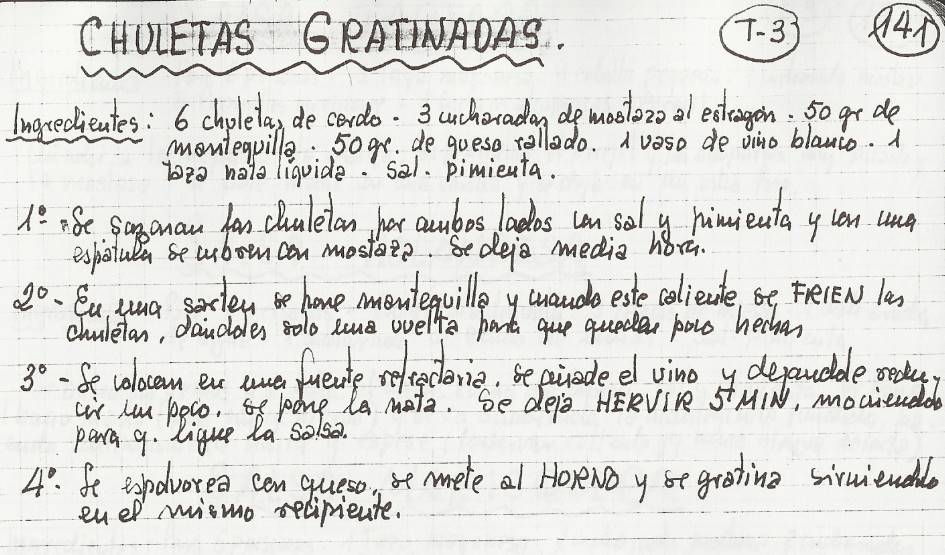 CHULETAS GRATINADAS. T-3 141
Ingredientes: 6 chuletas de cerdo - 3 cucharadas de mostaza al estragón - 50 gr de
mantequilla - 50 gr. de queso rallado. 1 vaso de vino blanco. 1
taza nata líquida - Sal - Pimienta.
1º - Se sazonan las chuletas por ambos lados con sal y pimienta y con una
espátula se cubren con mostaza. Se deja media hora.
2º - En una sarten se pone mantequilla y cuando este caliente, se FRIEN las
chuletas, dandoles solo una vuelta para que queden poco hechas
3º - Se colocan en una fuente refractaria, se añade el vino y dejandole redu-
cir un poco, se pone la nata. Se deja HERVIR 5 MIN, moviendolo
para q. ligue la salsa.
4º. Se espolvorea con queso, se mete al HORNO y se gratina sirviendolo
en el mismo recipiente.